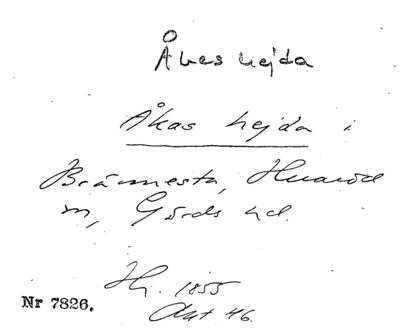 Åkes hejda
Åkas hejda i
Brännesta, Huaröd
sn, Gärds hd.
Hj. 1855
Akt 46.
Nr 7826.